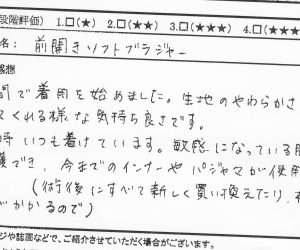 段階評価) 1.□(★) 2.□(★★) 3.□(★★★) 4.□(★★★
名: 前開きソフトブラジャー
感想
間で着用を始めました。生地のやわらかさ
てくれる様な気持ち良さです。
時いつも着けています。敏感になっている肌
護でき、今までのインナーやパジャマが使用
(術後にすべて新しく買い換えたり、
がかかるので)
ジや誌面などで、ご紹介させていただく場合がございます。